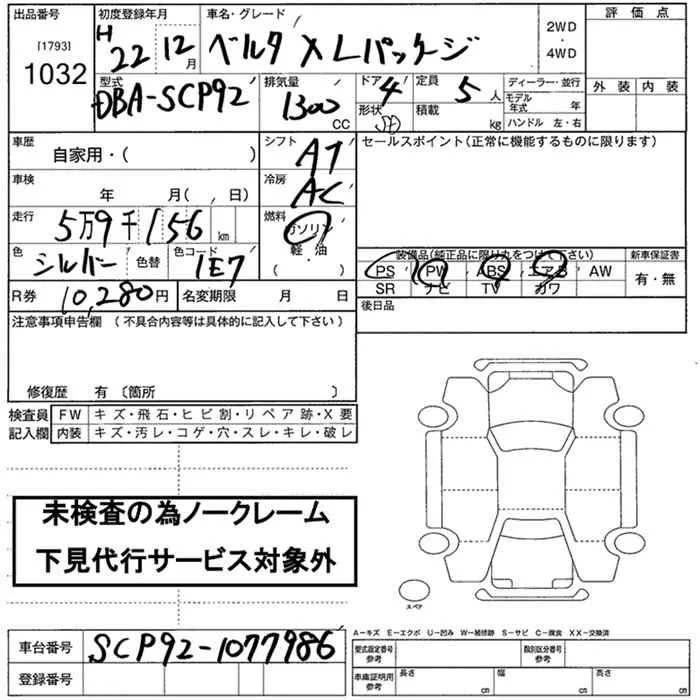 出品番号 初度登録年月 車名・グレード 2WD・4WD 評価点
[1793] 1032 H 22 12月 ベルタ XLパッケージ
外装 内装
型式 排気量 ドア 定員 ディーラー・並行
DBA-SCP92 1300CC 4 5人 モデル年式 年
形状 積載 kg ハンドル 左・右
車歴 シフト セールスポイント(正常に機能するものに限ります)
自家用・( ) AT
車検 冷房
年 月( , 日) AC
走行 燃料
5万9千156km ガソリン
軽・油
・( )
色 色コード 装備品(純正品に限り丸をつけて下さい) 新車保証書
シルバー 色替 1E7 PS PW ABS エアB AW 有・無
SR ナビ TV カワ
R券 10,280円 名変期限 月 日 後日品
注意事項申告欄 (不具合内容等は具体的に記入して下さい)
修復歴 有 〔箇所 〕
検査員 FW キズ・飛石・ヒビ割・リペア跡・X要
記入欄 内装 キズ・汚レ・コゲ・穴・スレ・キレ・破レ
未検査の為ノークレーム
下見代行サービス対象外
スペア
A-キズ E-エクボ U-凹み W-補修跡 S-サビ C-腐食 XX-交換済
車台番号 SCP92-1077986
型式指定番号 参考 類別区分番号 参考
登録番号
車庫証明用 参考 長さ cm 幅 cm 高さ cm